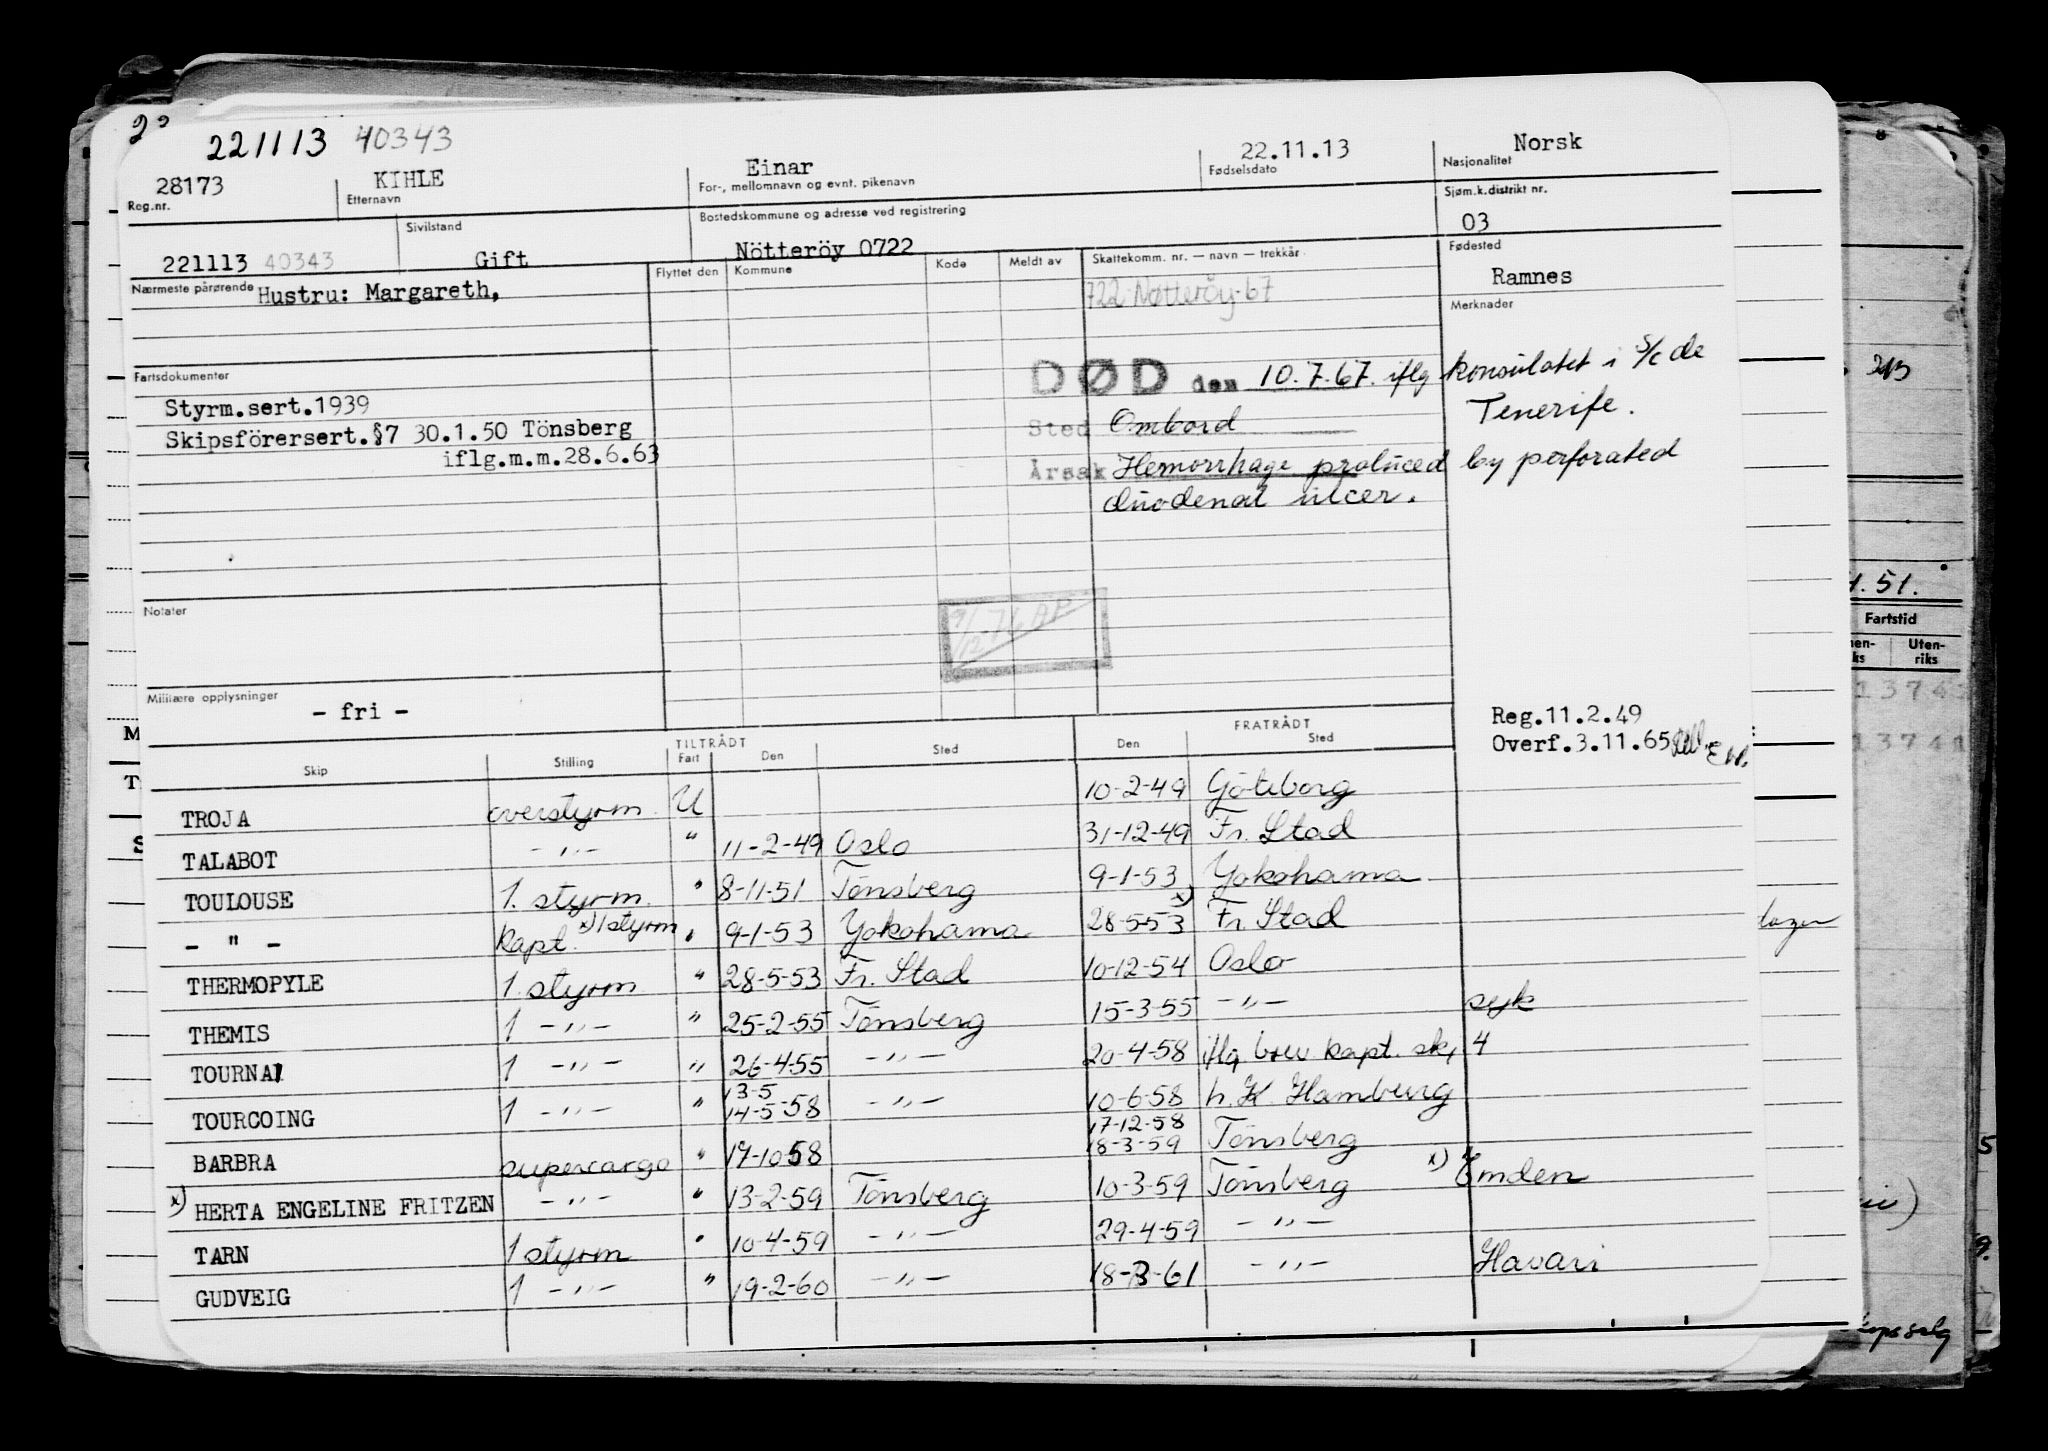 221113 40343
28173 KIHLE Einar 22.11.13 Norsk
Reg.nr. Etternavn For-, mellomnavn og evnt. pikenavn Fødselsdato Nasjonalitet
Sivilstand Bostedskommune og adresse ved registrering Sjøm.k.distrikt nr.
221113 40343 Gift Nötteröy 0722 03
Nærmeste pårørende Flyttet den Kommune Kode Meldt av Skattekomm. nr. — navn — trekkår Fødested
Hustru: Margareth, 722 Nøtterøy-67 Ramnes
Merknader
Fartsdokumenter
DØD den 10.7.67. iflg konsulatet i S/c de
Styrm.sert.1939 Sted Ombord Tenerife.
Skipsförersert.§7 30.1.50 Tönsberg
iflg.m.m.28.6.63 Årsak Hemorrhage produced by perforated
duodenal ulcer.
Notater
9/12-76 AP
Militære opplysninger
- fri -
Reg.11.2.49
Overf.3.11.65
TILTRÅDT FRATRÅDT
Skip Stilling Fart Den Sted Den Sted
TROJA overstyrm. U 10-2-49 Göteborg
TALABOT -"- " 11-2-49 Oslo 31-12-49 Fr. Stad
TOULOUSE 1. styrm. " 8-11-51 Tönsberg 9-1-53 Yokohama
- " - Kapt. x) 1 styrm " 9-1-53 Yokohama 28-5-53 x) Fr. Stad
THERMOPYLE 1. styrm " 28-5-53 Fr. Stad 10-12-54 Oslo
THEMIS 1 -"- " 25-2-55 Tönsberg 15-3-55 -"- syk
TOURNAI 1 -"- " 26-4-55 -"- 20-4-58 iflg brev kapt. sk, 4
TOURCOING 1 -"- " 13-5 14-5-58 -"- 10-6-58 h.K. Hamburg
BARBRA supercargo " 17-10-58 17-12-58 18-3-59 Tönsberg
x) HERTA ENGELINE FRITZEN -"- " 13-2-59 Tönsberg 10-3-59 Tönsberg x) Emden
TARN 1 styrm " 10-4-59 -"- 29-4-59 -"-
GUDVEIG 1 -"- " 19-2-60 -"- 18-3-61 -"- Havari
1.51.
Fartstid
Uten-
riks
13741
13741